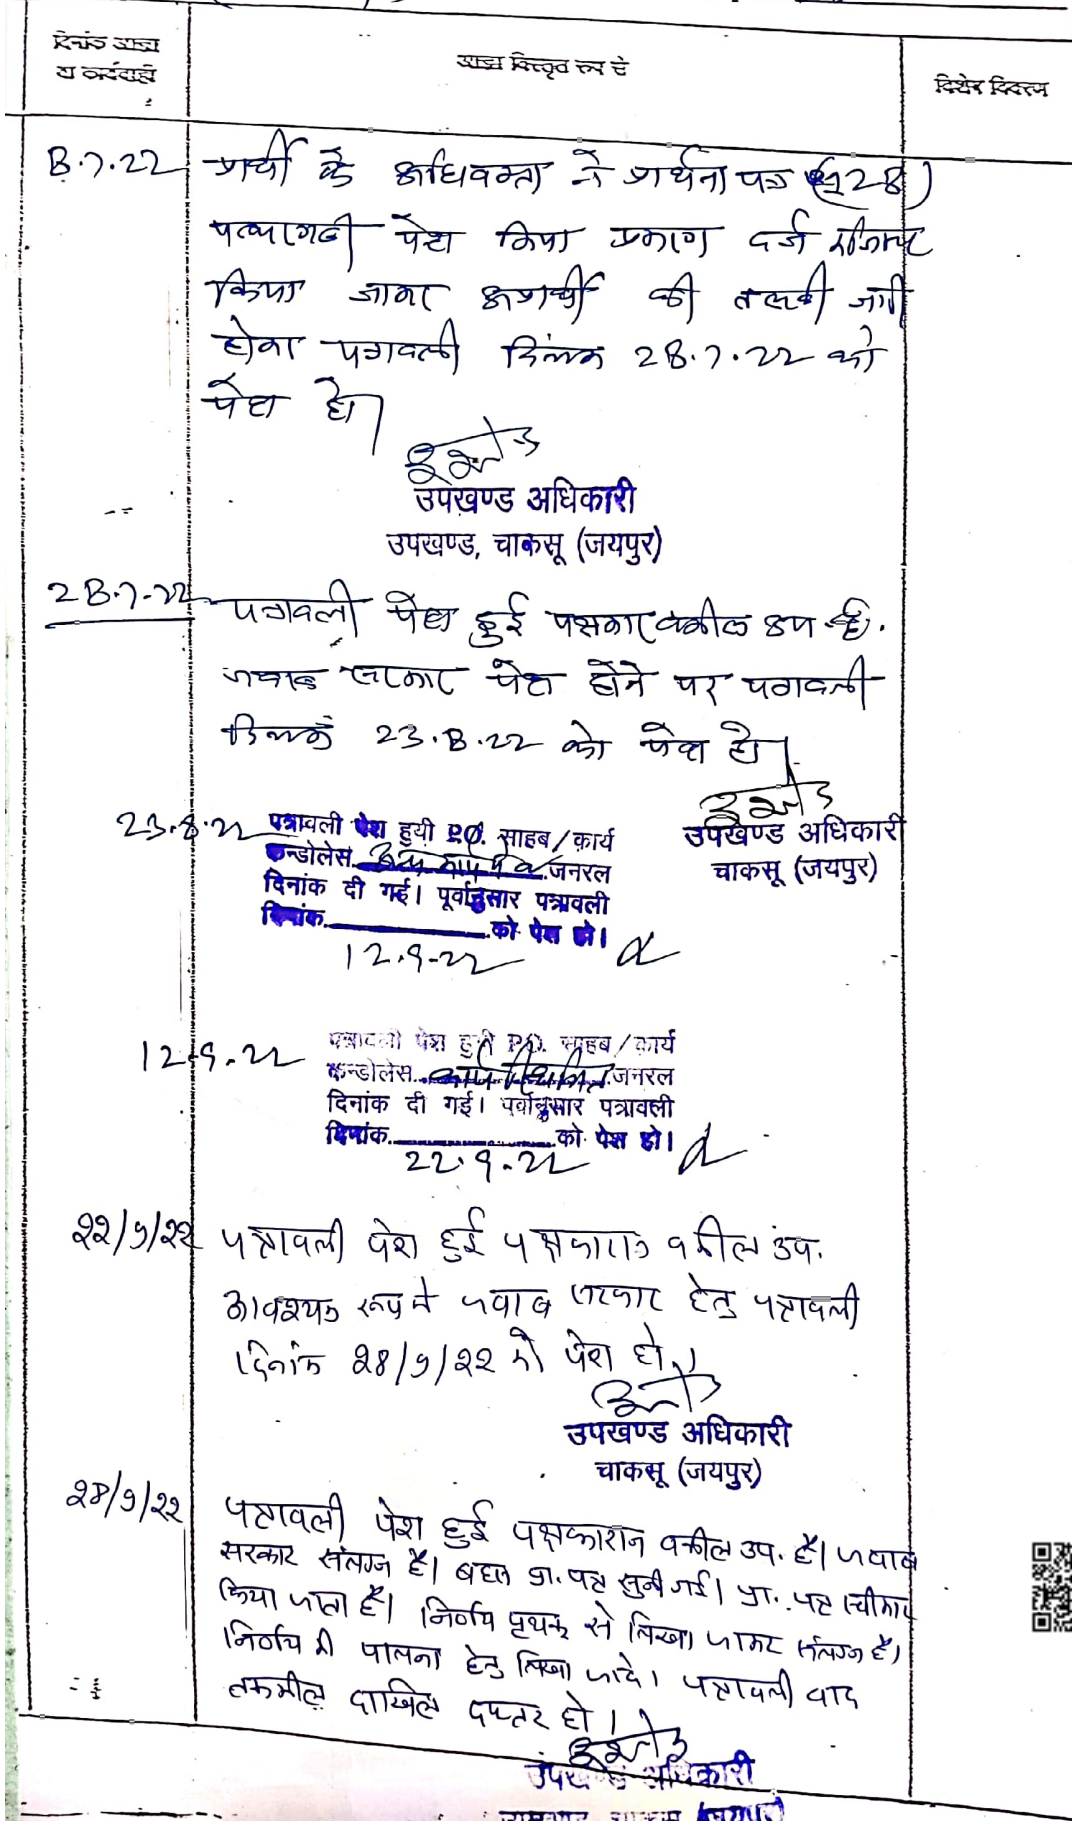 दिनांक आज्ञा
या कार्यवाही
आज्ञा विस्तृत रूप से
विशेष विवरण
8.7.22
प्रार्थी के अधिवक्ता ने प्रार्थना पत्र (128)
पत्थरगढी पेश किया प्रकरण दर्ज रजिस्टर
किया जाकर अप्रार्थी की तलबी जारी
होकर पत्रावली दिनांक 28.7.22 को
पेश हो।
उपखण्ड अधिकारी
उपखण्ड, चाकसू (जयपुर)
28.7.22
पत्रावली पेश हुई पक्षकार वकील उप है.
जवाब सरकार पेश होने पर पत्रावली
दिनांक 23.8.22 को पेश हो।
उपखण्ड अधिकारी
चाकसू (जयपुर)
23.8.22
पत्रावली पेश हुयी P.O. साहब/कार्य
कन्डोलेस जनरल
दिनांक दी गई। पूर्वानुसार पत्रावली
दिनांक को पेश हो।
12.9.22
12.9.22
पत्रावली पेश हुयी P.O. साहब/कार्य
कन्डोलेस कार्य स्थगित जनरल
दिनांक दी गई। पूर्वानुसार पत्रावली
दिनांक को पेश हो।
22.9.22
२२/९/२२
पत्रावली पेश हुई पक्षकारान वकील उप.
आवश्यक रूप से जवाब सरकार हेतु पत्रावली
दिनांक २८/९/२२ को पेश हो।
उपखण्ड अधिकारी
चाकसू (जयपुर)
२८/९/२२
पत्रावली पेश हुई पक्षकारान वकील उप. है। जवाब
सरकार संलग्न है। बहस प्रा. पत्र सुनी गई। प्रा. पत्र स्वीकार
किया जाता है। निर्णय पृथक से लिखा जाकर संलग्न है।
निर्णय की पालना हेतु लिखा जावे। पत्रावली बाद
तकमील दाखिल दफ्तर हो।
उपखण्ड अधिकारी
उपखण्ड चाकसू (जयपुर)